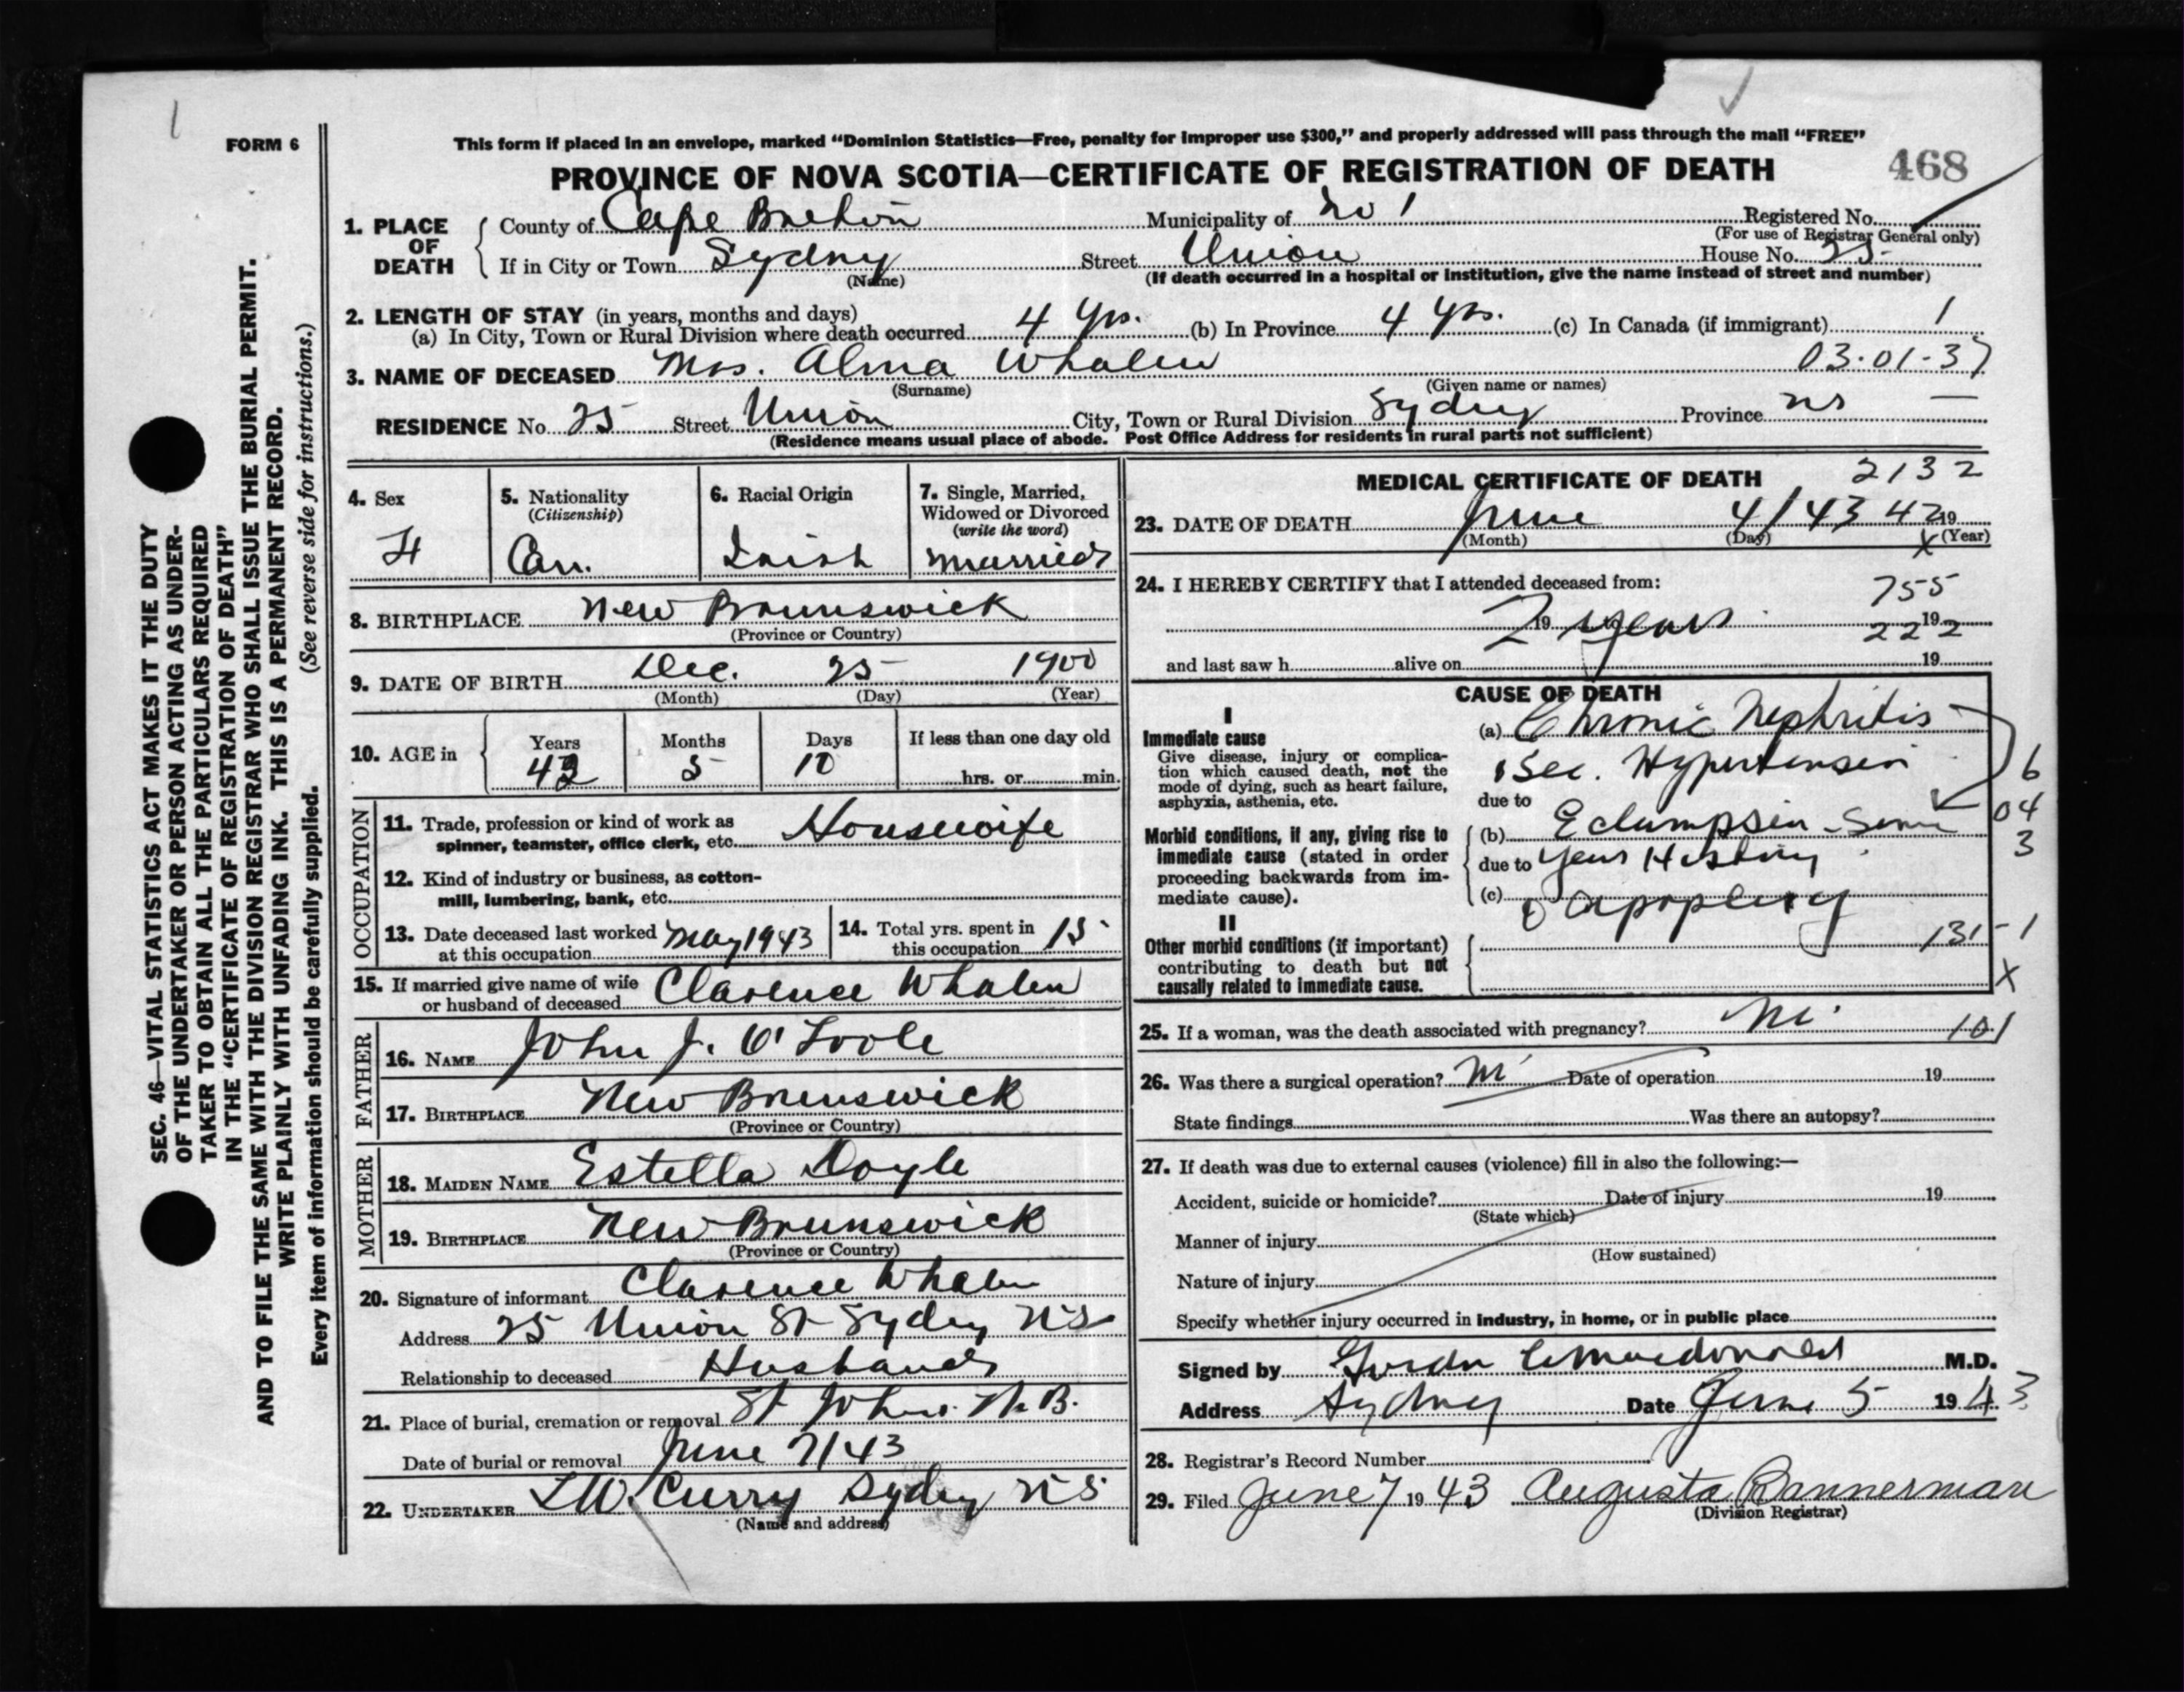 1
FORM 6
This form if placed in an envelope, marked “Dominion Statistics—Free, penalty for improper use $300,” and properly addressed will pass through the mail “FREE”
PROVINCE OF NOVA SCOTIA—CERTIFICATE OF REGISTRATION OF DEATH
468
1. PLACE OF DEATH
County of Cape Breton Municipality of No 1 Registered No.
(For use of Registrar General only)
If in City or Town Sydney Street Union House No. 25
(Name) (If death occurred in a hospital or institution, give the name instead of street and number)
2. LENGTH OF STAY (in years, months and days)
(a) In City, Town or Rural Division where death occurred 4 Yrs. (b) In Province 4 Yrs. (c) In Canada (if immigrant) 1
3. NAME OF DECEASED Mrs. Alma Whalen 03-01-37
(Surname) (Given name or names)
RESIDENCE No. 25 Street Union City, Town or Rural Division Sydney Province NS —
(Residence means usual place of abode. Post Office Address for residents in rural parts not sufficient)
4. Sex
F
5. Nationality
(Citizenship)
Can.
6. Racial Origin
Irish
7. Single, Married, Widowed or Divorced
(write the word)
Married
8. BIRTHPLACE New Brunswick
(Province or Country)
9. DATE OF BIRTH Dec. 25 1900
(Month) (Day) (Year)
10. AGE in
Years Months Days If less than one day old
42 5 10 hrs. or min.
OCCUPATION
11. Trade, profession or kind of work as
spinner, teamster, office clerk, etc. Housewife
12. Kind of industry or business, as cotton-
mill, lumbering, bank, etc.
13. Date deceased last worked
at this occupation May 1943
14. Total yrs. spent in
this occupation 15
15. If married give name of wife
or husband of deceased Clarence Whalen
FATHER
16. NAME John J. O'Toole
17. BIRTHPLACE New Brunswick
(Province or Country)
MOTHER
18. MAIDEN NAME Estella Doyle
19. BIRTHPLACE New Brunswick
(Province or Country)
20. Signature of informant Clarence Whalen
Address 25 Union St Sydney NS
Relationship to deceased Husband
21. Place of burial, cremation or removal St John. N.B.
Date of burial or removal June 7/43
22. UNDERTAKER Curry Sydney NS
(Name and address)
MEDICAL CERTIFICATE OF DEATH 2132
23. DATE OF DEATH June 4/43 42 19
(Month) (Day) X (Year)
24. I HEREBY CERTIFY that I attended deceased from:
755
2 years 19 to 19
222
and last saw h alive on 19
CAUSE OF DEATH
I
Immediate cause
Give disease, injury or complica-
tion which caused death, not the
mode of dying, such as heart failure,
asphyxia, asthenia, etc.
(a) Chronic Nephritis
Sec. Hypertension
6
due to
Morbid conditions, if any, giving rise to
immediate cause (stated in order
proceeding backwards from im-
mediate cause).
(b) Eclampsia - Some
04
due to Years History
3
(c) Apoplexy
II
Other morbid conditions (if important)
contributing to death but not
causally related to immediate cause.
131-1
X
25. If a woman, was the death associated with pregnancy? No. 101
26. Was there a surgical operation? No Date of operation 19
State findings Was there an autopsy?
27. If death was due to external causes (violence) fill in also the following:—
Accident, suicide or homicide? Date of injury 19
(State which)
Manner of injury
(How sustained)
Nature of injury
Specify whether injury occurred in industry, in home, or in public place
Signed by Gordon Macdonald M.D.
Address Sydney Date June 5 1943
28. Registrar's Record Number
29. Filed June 7 1943 Augusta Bannerman
(Division Registrar)
SEC. 46—VITAL STATISTICS ACT MAKES IT THE DUTY
OF THE UNDERTAKER OR PERSON ACTING AS UNDER-
TAKER TO OBTAIN ALL THE PARTICULARS REQUIRED
IN THE “CERTIFICATE OF REGISTRATION OF DEATH”
AND TO FILE THE SAME WITH THE DIVISION REGISTRAR WHO SHALL ISSUE THE BURIAL PERMIT.
WRITE PLAINLY WITH UNFADING INK. THIS IS A PERMANENT RECORD.
Every item of information should be carefully supplied. (See reverse side for instructions.)